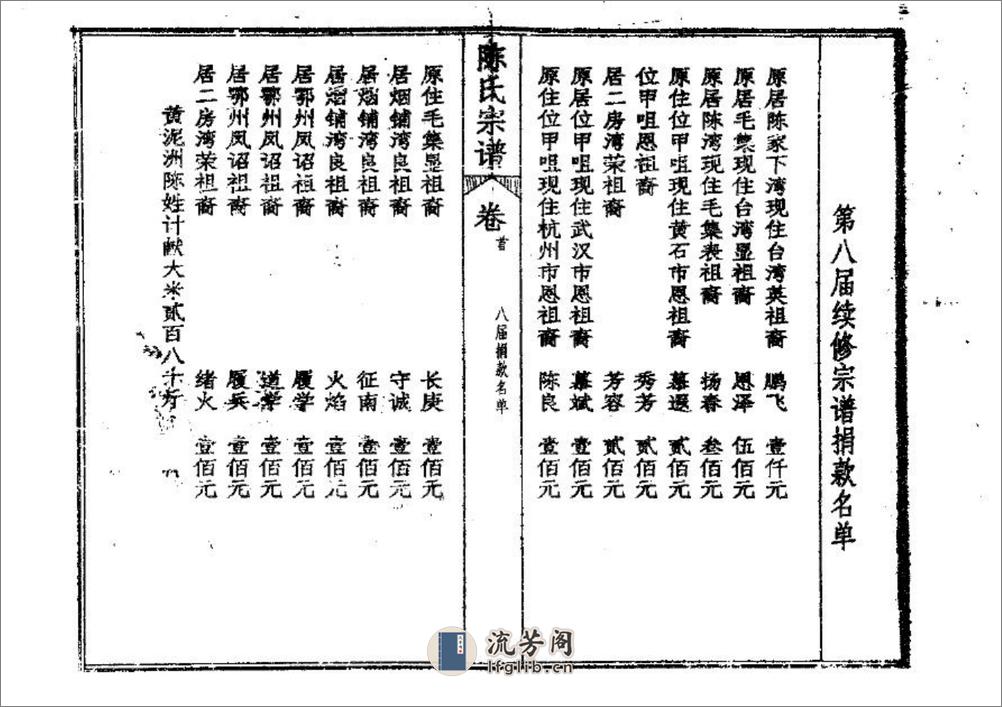 第八届续修宗谱捐款名单
原居陈家下湾现住台湾英祖裔 鹏飞 壹仟元
原居毛集现住台湾显祖裔 恩泽 伍佰元
原居陈湾现住毛集表祖裔 扬春 叁佰元
原住位甲咀现住黄石市恩祖裔 慕遐 贰佰元
位甲咀恩祖裔 秀芳 贰佰元
居二房湾荣祖裔 芳容 贰佰元
原居位甲咀现住武汉市恩祖裔 慕斌 壹佰元
原住位甲咀现住杭州市恩祖裔 陈良 壹佰元
陈氏宗谱 卷首 八届捐款名单
原住毛集显祖裔 长庚 壹佰元
居烟铺湾良祖裔 守诚 壹佰元
居烟铺湾良祖裔 征南 壹佰元
居烟铺湾良祖裔 火焰 壹佰元
居鄂州凤诏祖裔 履学 壹佰元
居鄂州凤诏祖裔 道学 壹佰元
居鄂州凤诏祖裔 履兵 壹佰元
居二房湾荣祖裔 绪火 壹佰元
黄泥洲陈姓计献大米贰百八十斤
流芳阁
lfglib.cn